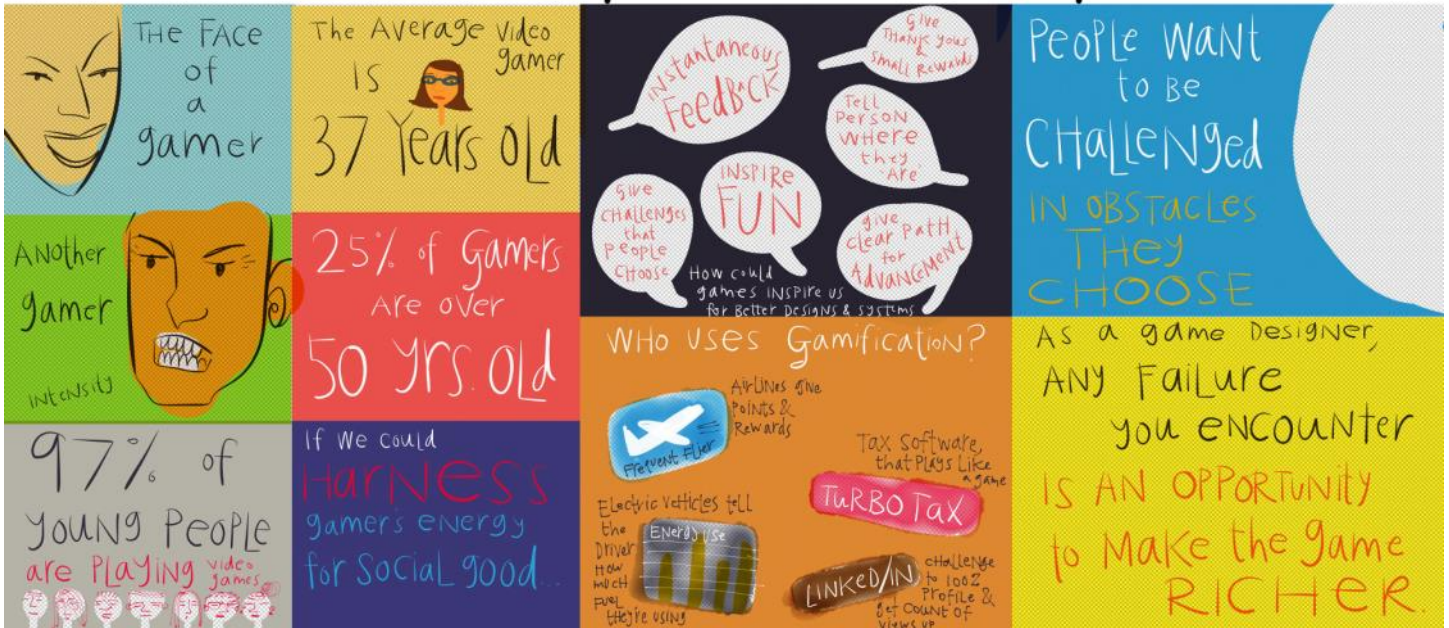 THE FACE
of
a
gamer
The Average Video
gamer
IS
37 Years Old
ANother
gamer
INtENSity
25% of Gamers
Are over
50 yrs. Old
97% of
YOUNG PEOPLE
are PLAYiNg video
games
If We could
HarNESS
gamer's eNergy
for SOCiaL good...
INStantaneous
FeedBACK
Give
THANK YOUs
&
SMall Rewards
Tell
PERSON
WHERE
they
'Are'
INSPIRE
FUN
GIVE
CHallenges
that
People
CHOOSE
give
clear Path
for
AdvancEMENT
How could
games INSPIRE us
for Better Designs & systems
WHO Uses Gamification?
AirLINes give
Points &
Rewards
Frequent Flier
Tax Software,
that Plays Like
a game
TURBO TAX
Electric vehicles tell
the
Driver
How
much
Fuel
they're using
Energy Use
LINKED/IN
CHallenge
to 100%
Profile &
get Count of
views up
PEOPLE WaNt
to Be
CHaLLENged
IN OBSTacLes
THEY
CHOOSE
As a game Designer,
ANY FaiLure
you eNCOUNter
IS AN OPPORTUNity
to Make the game
RICHER.